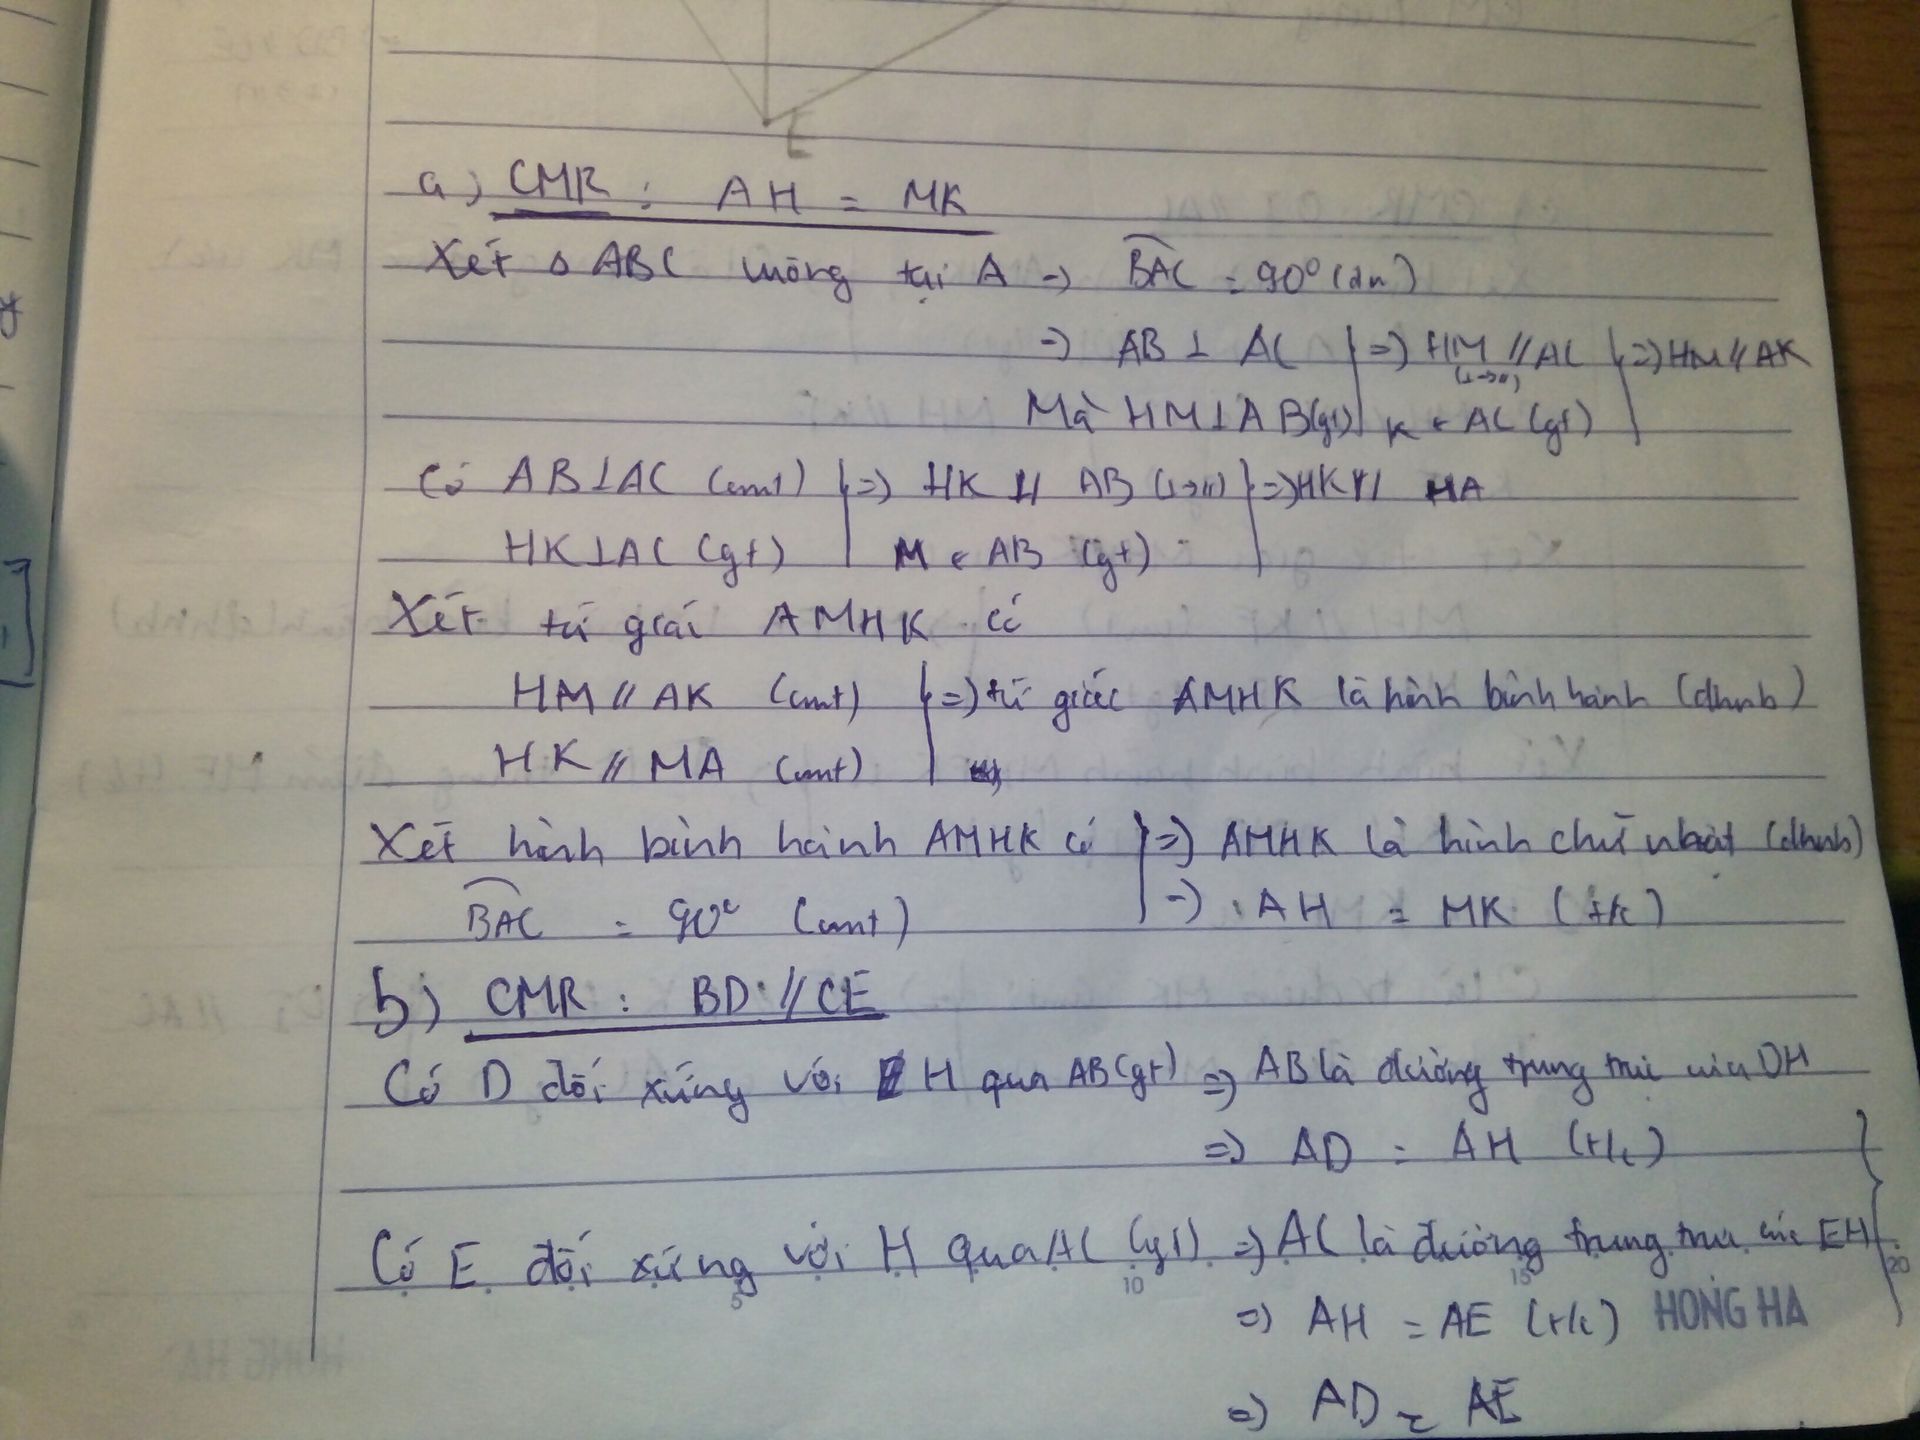 E
a) CMR : AH = MK
Xét Δ ABC vuông tại A => BAC = 90° (đn)
=> AB ⊥ AC | => HM // AC | => HM // AK
(⊥→//)
Mà HM ⊥ AB (gt) | K ∈ AC (gt)
Có AB ⊥ AC (cmt) | => HK // AB (⊥→//) | => HK // MA
HK ⊥ AC (gt) | M ∈ AB (gt)
Xét tứ giác AMHK có
HM // AK (cmt) | => tứ giác AMHK là hình bình hành (dhnb)
HK // MA (cmt)
Xét hình bình hành AMHK có | => AMHK là hình chữ nhật (dhnb)
BAC = 90° (cmt) | => AH = MK (t/c)
b) CMR : BD // CE
Có D đối xứng với H qua AB (gt) => AB là đường trung trực của DH
=> AD = AH (t/c)
Có E đối xứng với H qua AC (gt) => AC là đường trung trực của EH
5 10 15 20
=> AH = AE (t/c) HONG HA
=> AD = AE